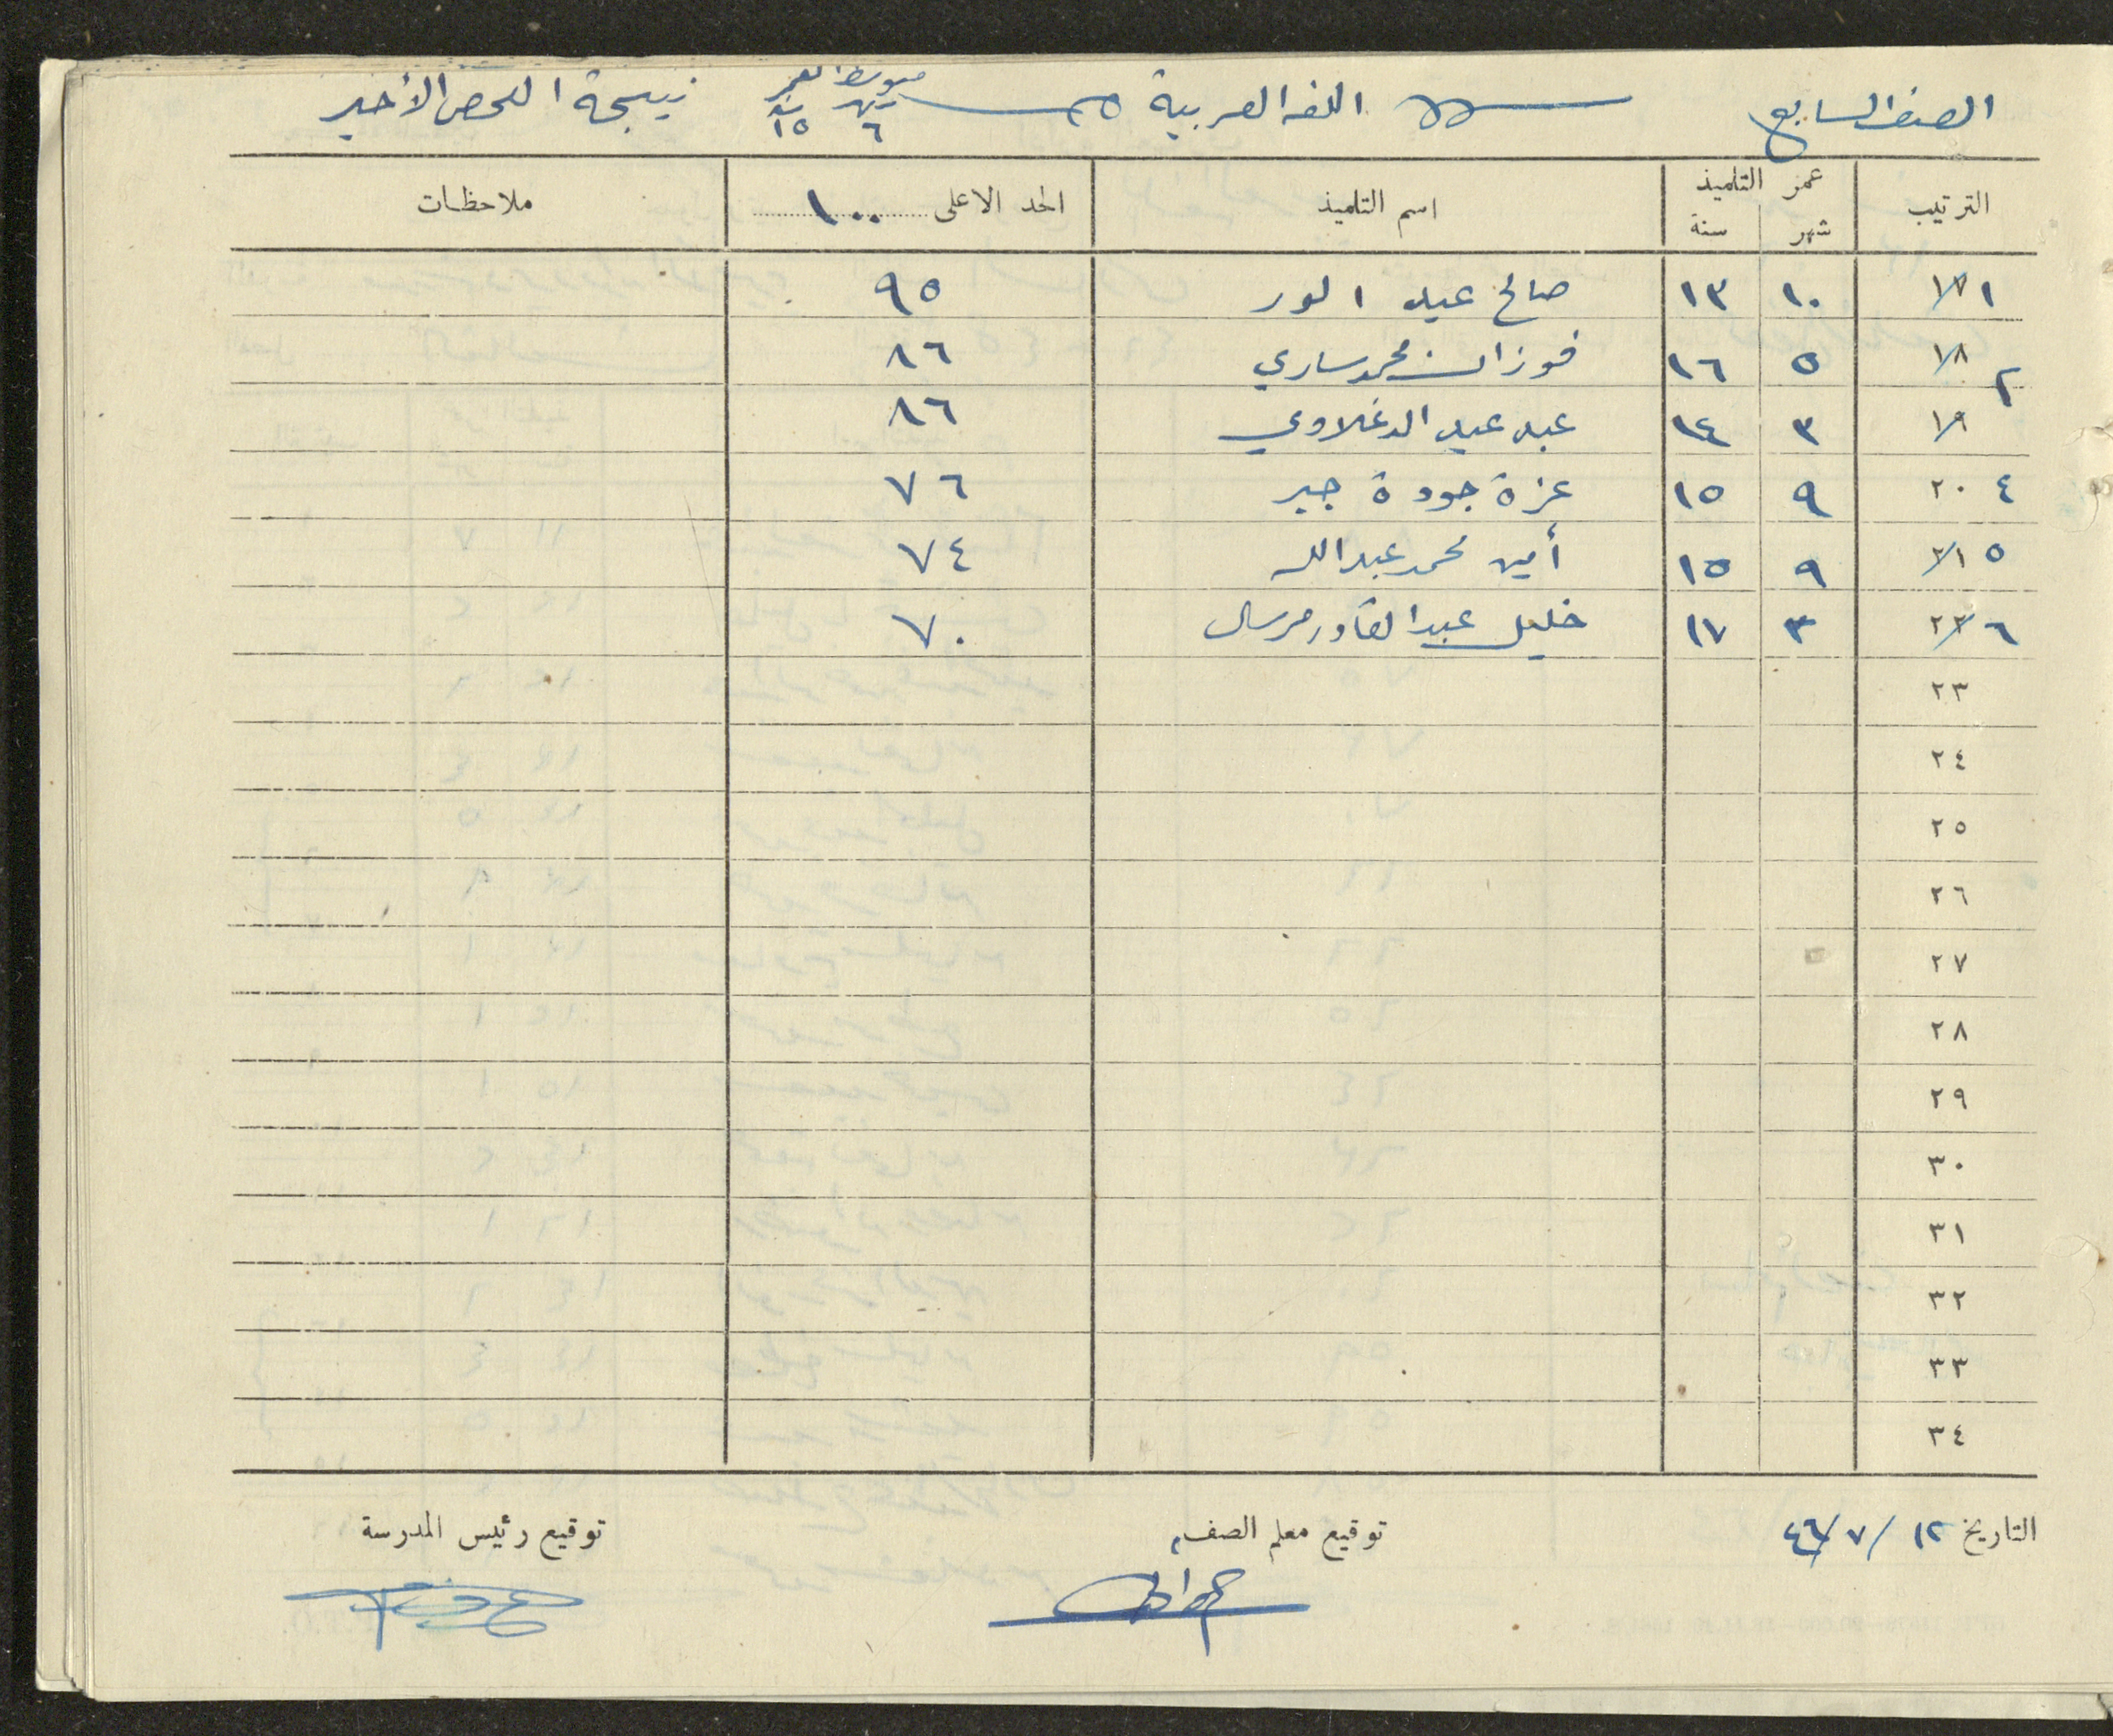 الصف السابع اللغة العربية متوسط العمر نتيجة الفحص الأخير
٦ ١٥
الترتيب عمر التلميذ اسم التلميذ الحد الاعلى ١٠٠ ملاحظات
شهر سنة
١ ١٧ ١٠ ١٣ صالح عيد النور ٩٥
٢ ١٨ ٥ ١٦ فوزان محمد ساري ٨٦
١٩ ٣ ١٤ عبد عيد الدغلاوي ٨٦
٤ ٢٠ ٩ ١٥ عزة جودة جبر ٧٦
٥ ٢١ ٩ ١٥ أمين محمد عبدالله ٧٤
٦ ٢٢ ٣ ١٧ خليل عبد القادر مرسال ٧٠
٢٣
٢٤
٢٥
٢٦
٢٧
٢٨
٢٩
٣٠
٣١
٣٢
٣٣
٣٤
التاريخ ١٢/٧/٤٦ توقيع معلم الصف توقيع رئيس المدرسة